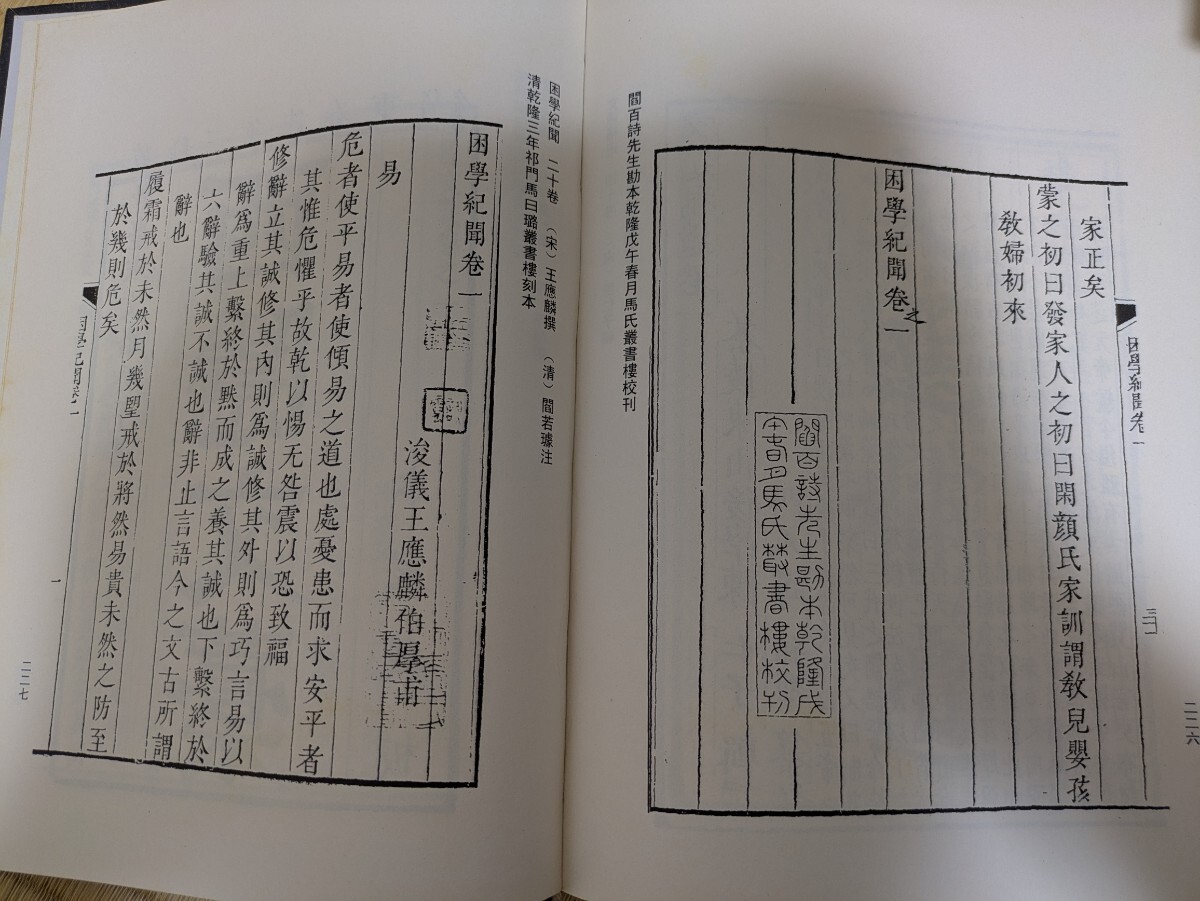 困學紀聞卷一
三一
二二六
家正矣
蒙之初曰發家人之初曰閑顏氏家訓謂敎兒嬰孩
敎婦初來
困學紀聞卷之一
閻百詩先生勘本乾隆戊
午春月馬氏叢書樓校刊
閻百詩先生勘本乾隆戊午春月馬氏叢書樓校刊
困學紀聞 二十卷 (宋)王應麟撰 (清)閻若璩注
清乾隆三年祁門馬曰璐叢書樓刻本
困學紀聞卷一
浚儀王應麟伯厚甫
易
危者使平易者使傾易之道也處憂患而求安平者
其惟危懼乎故乾以惕无咎震以恐致福
修辭立其誠修其內則爲誠修其外則爲巧言易以
辭爲重上繫終於默而成之養其誠也下繫終於
六辭驗其誠不誠也辭非止言語今之文古所謂
辭也
履霜戒於未然月幾望戒於將然易貴未然之防至
於幾則危矣
困學紀聞卷一
一
二二七